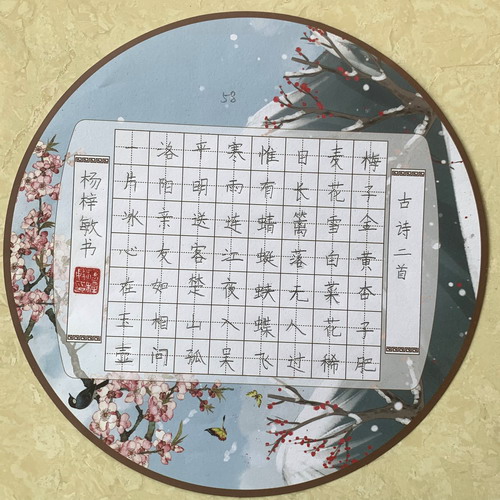 古诗二首
梅子金黄杏子肥
麦花雪白菜花稀
日长篱落无人过
惟有蜻蜓蛱蝶飞
寒雨连江夜入吴
平明送客楚山孤
洛阳亲友如相问
一片冰心在玉壶
杨梓敏书